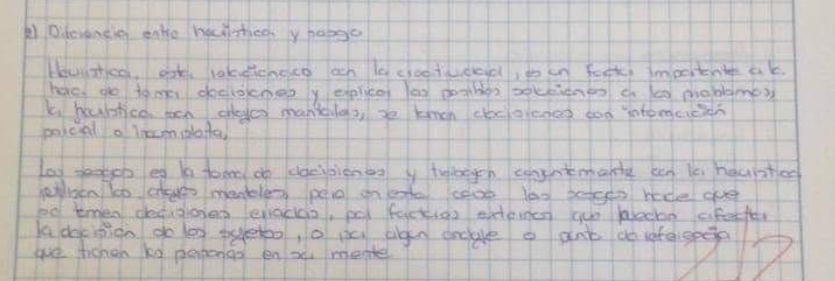 e) Diferencia entre heurística y sesgo
Heurística, está relacionada con la creatividad, es un factor importante a la
hora de tomar decisiones y explicar las posibles soluciones a los problemas,
la heurística son atajos mentales, se toman decisiones con información
parcial o incompleta,
Los sesgos es la toma de decisiones y trabajan conjuntamente con la heurística
utilizan los atajos mentales, pero en este caso los sesgos hace que
se tomen decisiones erradas, por factores externos que puedan afectar
la decisión de los sujetos, o por algún anclaje o punto de referencia
que tienen las personas en su mente